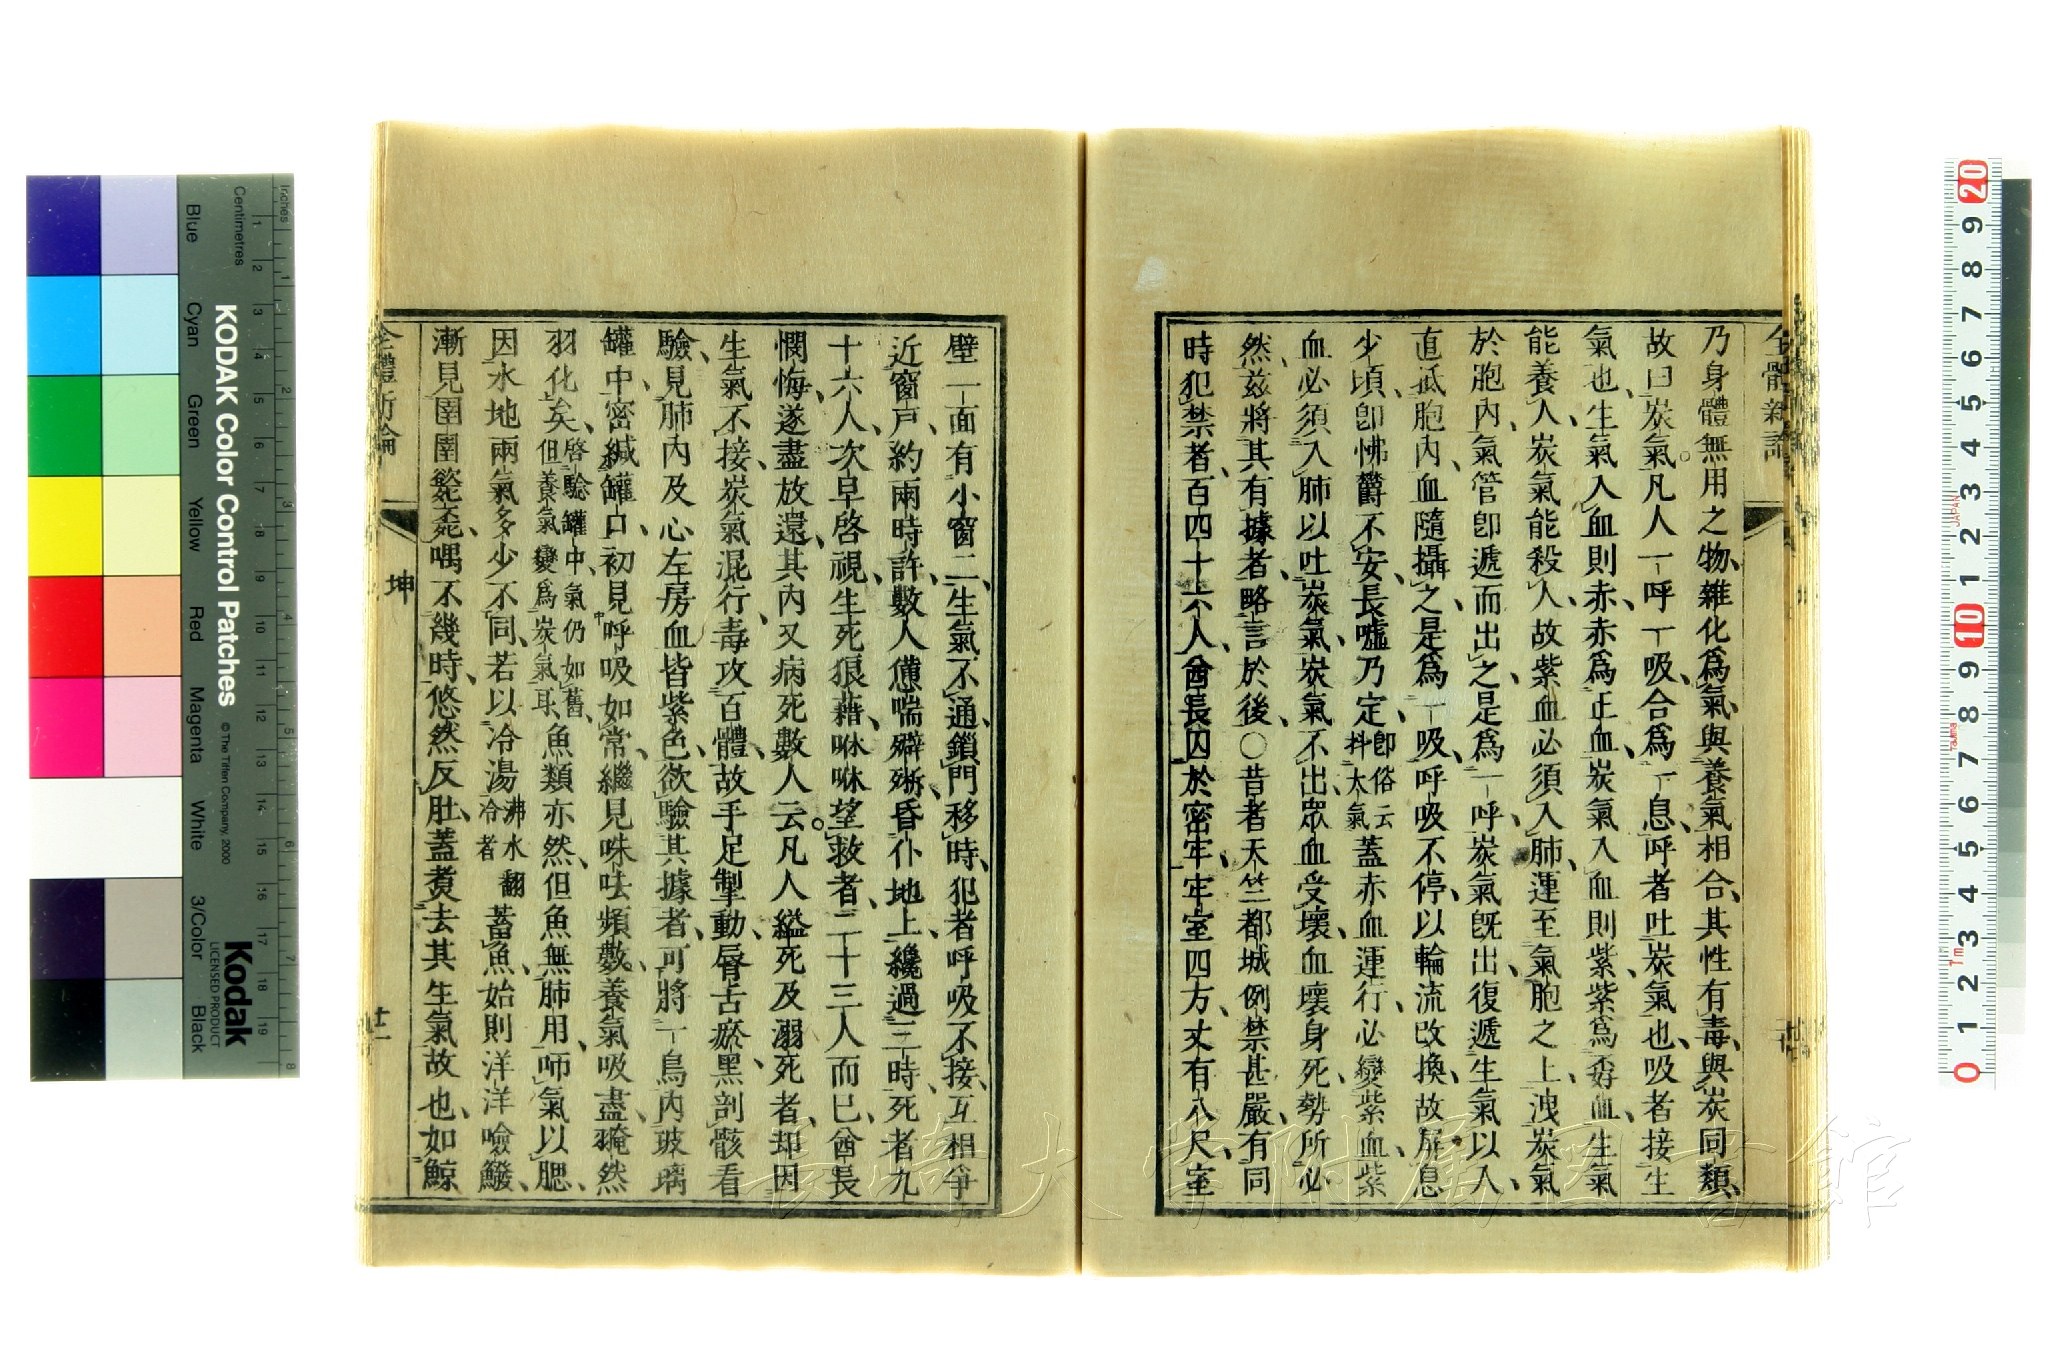 全體新論
乃身體無用之物、雜化爲氣、與養氣相合、其性有毒、與炭同類、
故曰炭氣。凡人一呼一吸合爲一息、呼者吐炭氣也、吸者接生
氣也、生氣入血則赤、赤爲正血、炭氣入血則紫、紫爲壞血、生氣
能養人、炭氣能殺人、故紫血必須入肺、運至氣胞之上、洩炭氣
於胞內、氣管卽遞而出之、是爲一呼、炭氣旣出、復遞生氣以入、
直抵胞內、血隨攝之、是爲一吸、呼吸不停、以輪流改換、故屏息
少頃、卽怫欝不安、長噓乃定、卽俗云抖大氣蓋赤血運行、必變紫血、紫
血必須入肺以吐炭氣、炭氣不出、眾血受壞、血壞身死、勢所必
然、茲將其有據者、略言於後、○昔者天竺都城、例禁甚嚴、有同
時犯禁者、百四十六人、酋長囚於密牢、牢室四方、丈有八尺、室
壁一面有小窗二、生氣不通、鎖門移時、犯者呼吸不接、互相爭
近窗戸、約兩時許、數人憊喘辦㱠、昏仆地上、纔過三時、死者九
十六人、次早啓視、生死狼藉、咻咻望救者、二十三人而已、酋長
憫悔、遂盡放還、其內又病死數人云。凡人縊死及溺死者、却因
生氣不接、炭氣混行、毒攻百體、故手足掣動、脣舌瘀黑、剖骸看
驗、見肺內及心左房血皆紫色、欲驗其據者、可將一鳥內玻璃
罐中、密緘罐口、初見呼吸如常、繼見咮呿頻數、養氣吸盡、㱡然
羽化矣、啓驗罐中、氣仍如舊、但養氣變爲炭氣耳、魚類亦然、但魚無肺用、啼氣以腮、
因水地兩氣多少不同、若以冷湯沸水翻冷者蓄魚、始則洋洋噞鱍、
漸見圉圉㲦㲦、喁不幾時、悠然反肚、蓋煑去其生氣故也、如鯨
全體新論
坤
十一
KODAK Color Control Patches
© The Tiffen Company, 2000
Kodak
LICENSED PRODUCT
Inches
Centimetres
Blue
Cyan
Green
Yellow
Red
Magenta
White
3/Color
Black
長崎大学附属図書館